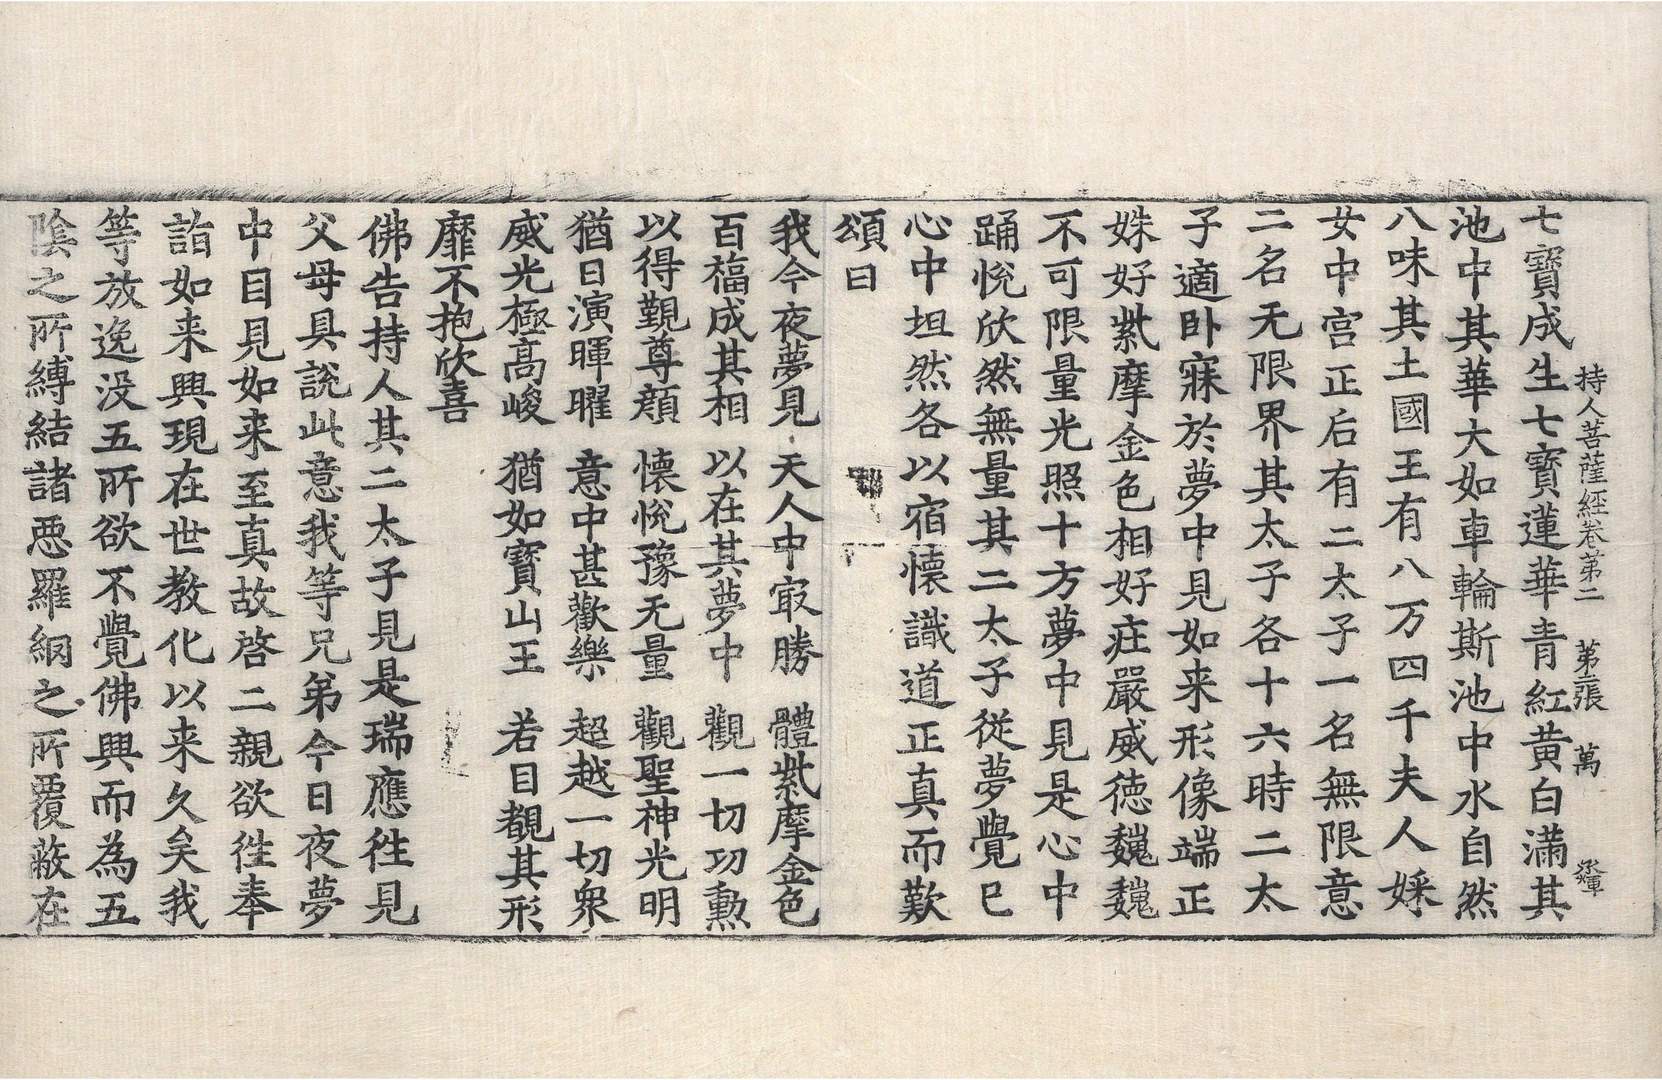 持人菩薩經卷第二 第 張 萬
七寶成生七寶蓮華青紅黃白滿其
池中其華大如車輪斯池中水自然
八味其土國王有八万四千夫人婇
女中宮正后有二太子一名無限意
二名无限界其太子各十六時二太
子適卧寐於夢中見如来形像端正
姝好紫摩金色相好庄嚴威德巍巍
不可限量光照十方夢中見是心中
踊悅欣然無量其二太子從夢覺已
心中坦然各以宿懷識道正真而歎
頌曰
我今夜夢見 天人中㝡勝 體紫摩金色
百福成其相 以在其夢中 觀一切功勳
以得覲尊顔 懷悅豫无量 觀聖神光明
猶日演暉曜 意中甚歡樂 超越一切衆
威光極高峻 猶如寶山王 若目覩其形
靡不抱欣喜
佛告持人其二太子見是瑞應往見
父母具說此意我等兄弟今日夜夢
中目見如来至真故啓二親欲往奉
詣如来興現在世教化以来久矣我
等放逸没五所欲不覺佛興而為五
陰之所縛結諸惡羅網之所覆蔽在